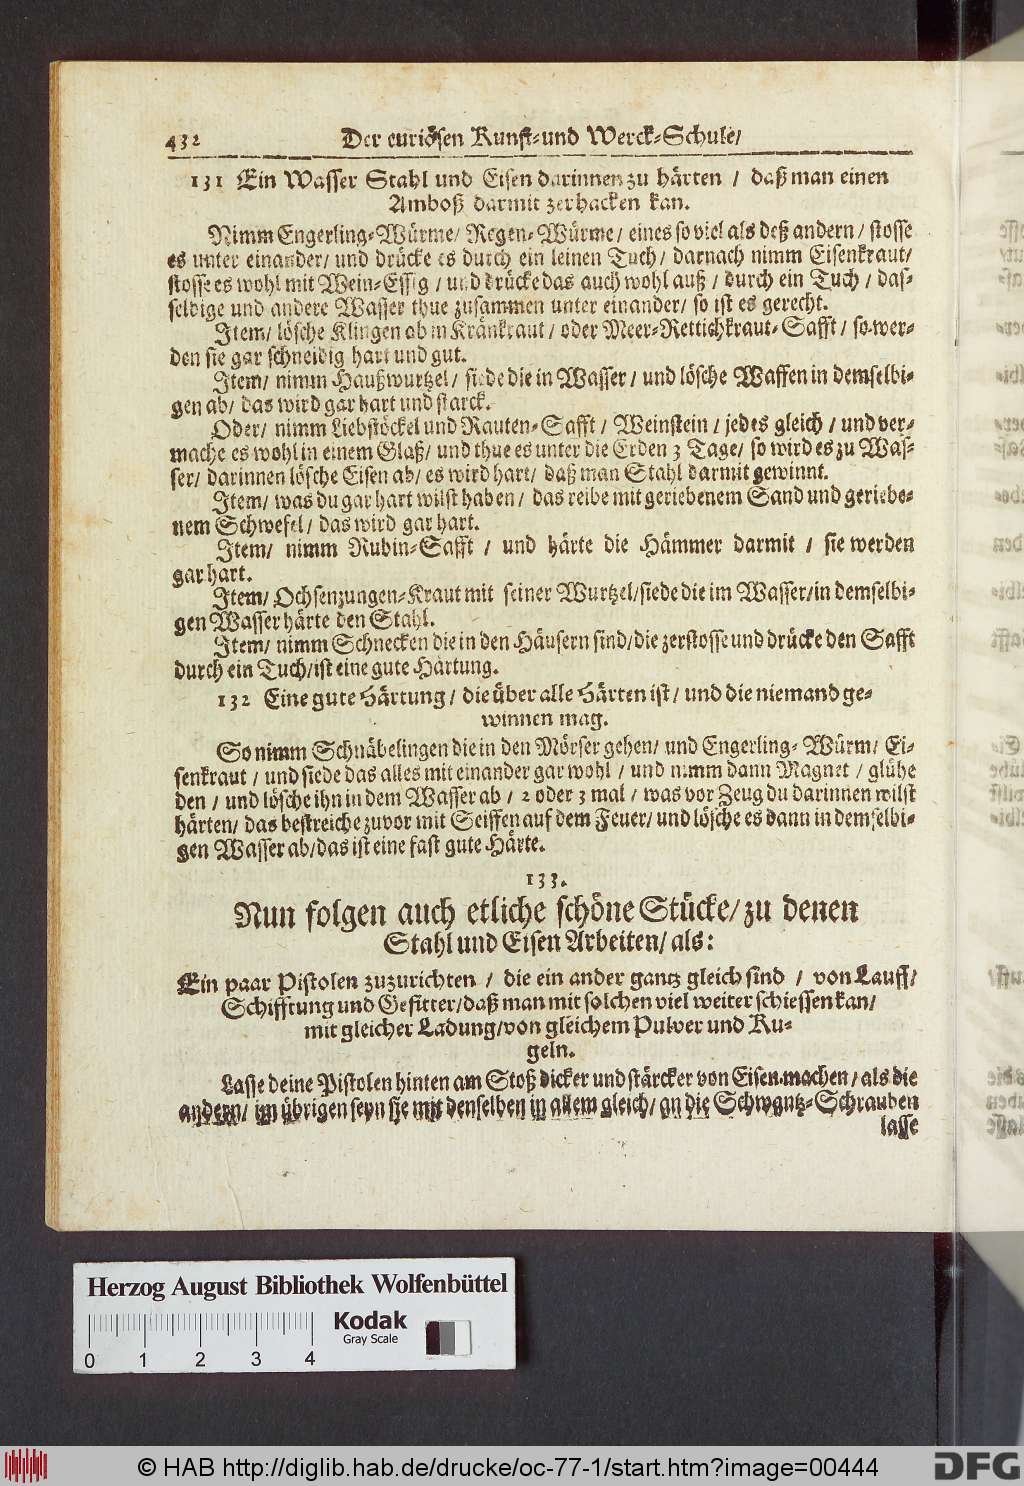 432 Der curiösen Kunst-und Werck-Schule/
131 Ein Wasser Stahl und Eisen darinnen zu härten / daß man einen
Amboß darmit zerhacken kan.
Nimm Engerling-Würme/ Regen-Würme/ eines so viel als deß andern/ stosse
es unter einander/ und drücke es durch ein leinen Tuch/ darnach nimm Eisenkraut/
stosse es wohl mit Wein-Essig / und drücke das auch wohl auß / durch ein Tuch / das-
seldige und andere Wasser thue zusammen unter einander/ so ist es gerecht.
Item/ lösche Klingen ab in Kränkraut / oder Meer-Rettichkraut-Safft / so wer-
den sie gar schneidig hart und gut.
Item/ nimm Haußwurtzel/ siede die in Wasser / und lösche Waffen in demselbi-
gen ab/ das wird gar hart und starck.
Oder/ nimm Liebstöckel und Rauten-Safft / Weinstein / jedes gleich / und ver-
mache es wohl in einem Glaß/ und thue es unter die Erden 3 Tage/ so wird es zu Was-
ser/ darinnen lösche Eisen ab/ es wird hart/ daß man Stahl darmit gewinnt.
Item/ was du gar hart wilst haben/ das reibe mit geriebenem Sand und geriebe-
nem Schwefel/ das wird gar hart.
Item/ nimm Rubin-Safft / und härte die Hämmer darmit / sie werden
gar hart.
Item/ Ochsenzungen-Kraut mit seiner Wurtzel/siede die im Wasser/in demselbi-
gen Wasser härte den Stahl.
Item/ nimm Schnecken die in den Häusern sind/die zerstosse und drücke den Safft
durch ein Tuch/ist eine gute Härtung.
132 Eine gute Härtung / die über alle Härten ist/ und die niemand ge-
winnen mag.
So nimm Schnäbelingen die in den Mörser gehen/ und Engerling-Würm/ Ei-
senkraut / und siede das alles mit einander gar wohl / und nimm dann Magnet / glühe
den / und lösche ihn in dem Wasser ab / 2 oder 3 mal / was vor Zeug du darinnen wilst
härten/ das bestreiche zuvor mit Seiffen auf dem Feuer/ und lösche es dann in demselbi-
gen Wasser ab/das ist eine fast gute Härte.
133.
Nun folgen auch etliche schöne Stücke/ zu denen
Stahl und Eisen Arbeiten/ als:
Ein paar Pistolen zuzurichten / die ein ander gantz gleich sind / von Lauff/
Schifftung und Gefitter/daß man mit solchen viel weiter schiessen kan/
mit gleicher Ladung/von gleichem Pulver und Ku-
geln.
Lasse deine Pistolen hinten am Stoß dicker und stärcker von Eisen machen/ als die
andern/ im übrigen seyn sie mit denselben in allem gleich/ an die Schwantz-Schrauben
lasse
Herzog August Bibliothek Wolfenbüttel
Kodak
Gray Scale
0 1 2 3 4
© HAB http://diglib.hab.de/drucke/oc-77-1/start.htm?image=00444
DFG